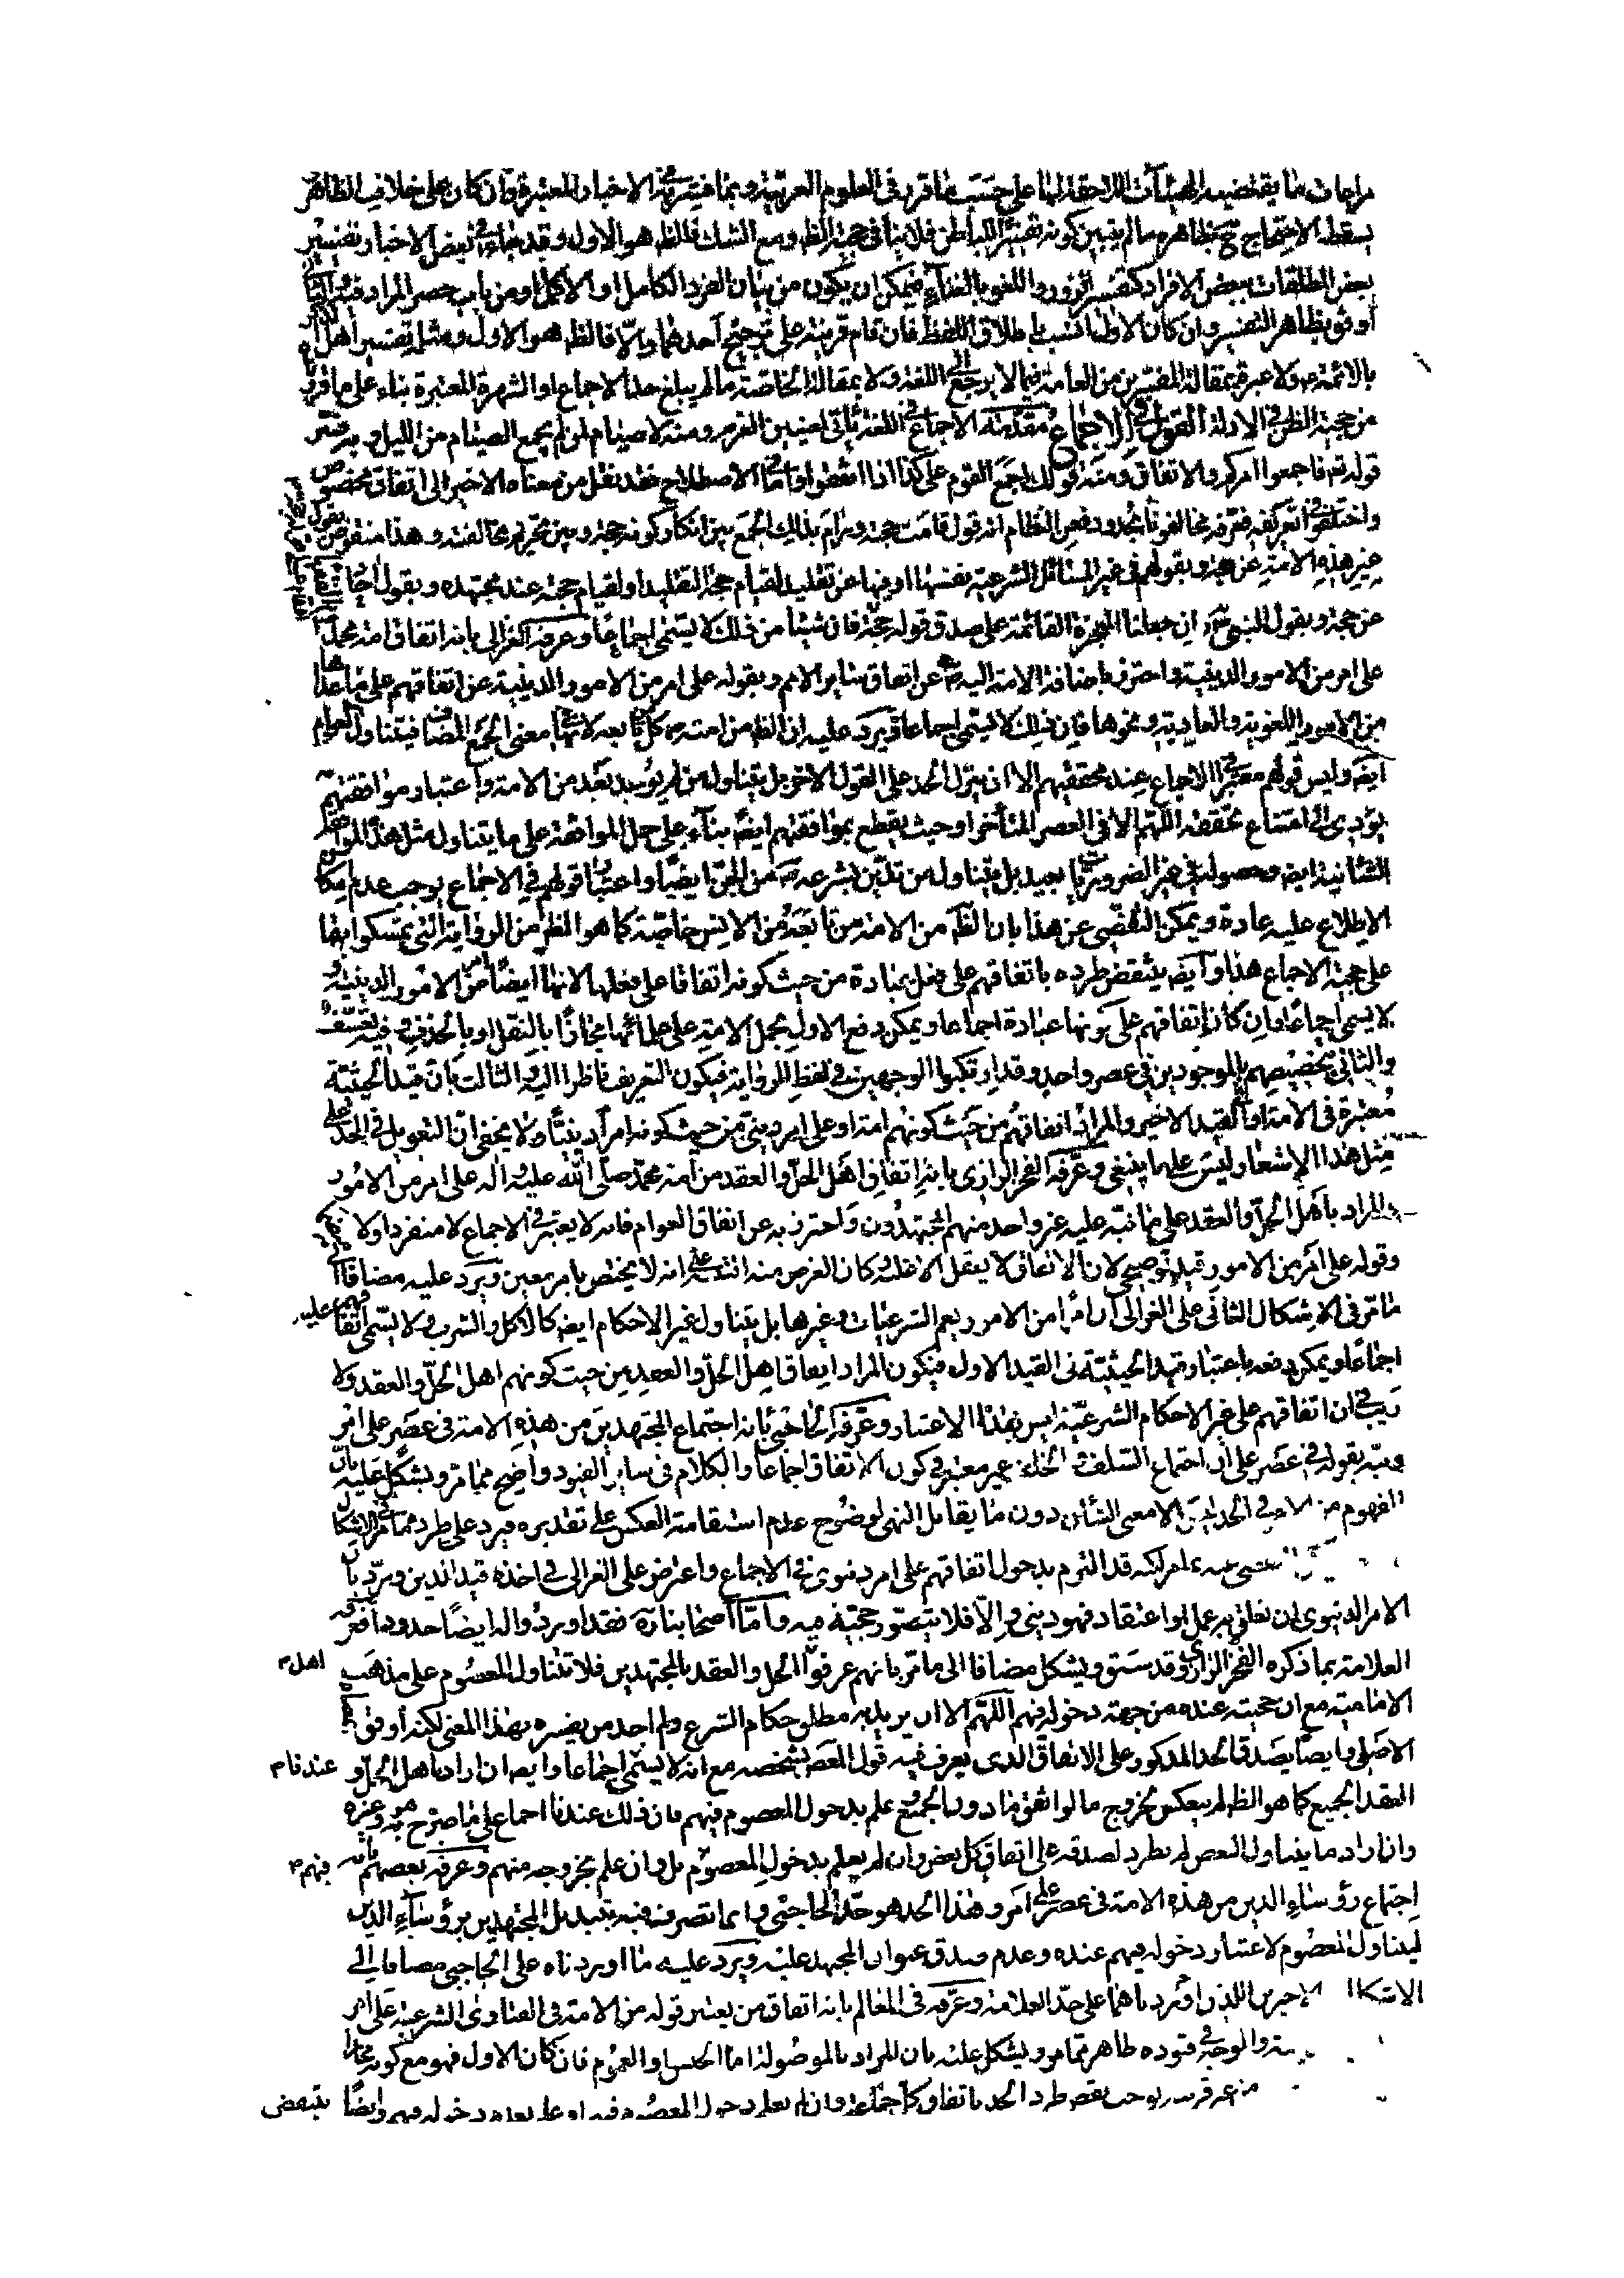 مراعات ما يقتضيه الهيئات اللاحقة لها على حسب ما قرر في العلوم العربية وبما فسر به في الاخبار المعتبرة وان كان على خلاف الظاهر
يسقط الاحتجاج ح بظاهره ما لم يتبين كونه تفسيرا للباطن فلا ينافي حجية الظ ومع الشك فالظ هو الاول وقد جاء في بعض الاخبار تفسير
بعض المطلقات ببعض الافراد كتفسير الزور واللغو بالغناء فيمكن ان يكون من بيان الفرد الكامل او الاكمل او من باب حصر المراد فيه والثاني
اوفق بظاهر التفسير وان كان الاول انسب باطلاق اللفظ فان قام قرينة على ترجيح احدهما والا فالظ هو الاول ومثله تفسير اهل الذكر
بالائمة ولا عبرة بمقالة المفسرين من العامة فيما لا يرجع الى اللغة ولا بمقالة الخاصة ما لم يبلغ حد الاجماع او الشهرة المعتبرة بناء على ما قرر
من حجية الظن في الادلة القول في الاجماع مقدمة الاجماع في اللغة ياتي لمعنيين العزم ومنه لا صيام لمن لم يجمع الصيام من الليل وبه فسر
قوله تع فاجمعوا امركم والاتفاق ومنه قولك اجمع القوم على كذا اذا اتفقوا واما في الاصطلاح فقد نقل من معناه الاخير الى اتفاق مخصوص
واختلفوا في تعريفه فعرفه مخالفونا بحدود فعن النظام انه قول قامت حجته ورام بذلك الجمع بين انكار كونه حجة وبين تحريم مخالفته وهذا منقوض بقول
غير هذه الامة عن حجة وبقولهم في غير المسائل الشرعية نفسها او فيها عن تقليد لقيام حجة التقليد او لقيام حجة عند مجتهده وبقول احاد
عن حجة وبقول النبي ص ان جعلنا المعجزة القائمة على صدق قوله حجة فان شيئا من ذلك لا يسمى اجماعا وعرفه الغزالي بانه اتفاق امة محمد
على امر من الامور الدينية واحترز باضافة الامة اليه ص عن اتفاق سائر الامم وبقوله على امر من الامور الدينية عن اتفاقهم على ما عداها
من الامور اللغوية والعادية ونحوها فان ذلك لا يسمى اجماعا ويرد عليه ان الظ من امته ص كل تابعيه لانها في معنى الجمع المضاف فيتناول العوام
ايض وليس قولهم معتبرا في الاجماع عند محققيهم الا ان ينزل الحد على القول الاخر بل يتناول من لم يوجد بعد من الامة واعتبار موافقتهم
يؤدي الى امتناع تحققه اللهم الا في العصر المتأخر او حيث يقطع بموافقتهم ايض بناء على حمل الموافقة على ما يتناول مثل هذا الموافقة
الشانية ايض وحصوله في غير الضروريات بعيد بل يتناول من تدين بشرعه ص من الجن ايضا واعتبار قولهم في الاجماع يوجب عدم امكان
الاطلاع عليه عادة ويمكن التفصي عن هذا بان الظ من الامة من تابعه من الانس خاصة كما هو الظ من الرواية التي تمسكوا بها
على حجية الاجماع هذا وايض ينتقض طرده باتفاقهم على فعل عبادة من حيث كونه اتفاقا على فعلها لانها ايضا من الامور الدينية و
لا يسمى اجماعا وان كان اتفاقهم على كونها عبادة اجماعا ويمكن دفع الاول بحمل الامة على علمائها مجازا بالنقل او بالحذف وفيه تعسف
والثاني بتخصيصهم بالموجودين في عصر واحد وقد ارتكبوا الوجهين في لفظ الرواية فيكون التعريف ناظرا اليه والثالث بان قيد الحيثية
معتبرة في الامة او القيد الاخير والمراد اتفاقهم من حيث كونهم امة او على امر ديني من حيث كونه امرا دينيا ولا يخفى ان التعويل في الحد على
مثل هذا الاشعار ليس على ما ينبغي وعرفه الفخر الرازي بانه اتفاق اهل الحل والعقد من امة محمد صلى الله عليه واله على امر من الامور
والمراد باهل الحل والعقد على ما نبه عليه غير واحد منهم المجتهدون واحترز به عن اتفاق العوام فانه لا يعتبر في الاجماع لا منفردا ولا منضما
وقوله على امر من الامور قيد توضيحي لان الاتفاق لا يعقل الا عليه وكان الغرض منه التنبيه على انه لا يختص بامر معين ويرد عليه مضافا الى
ما مر في الاشكال الثاني على الغزالي ان امرا من الامور يعم الشرعيات وغيرها بل يتناول غير الاحكام ايض كالاكل والشرب ولا يسمى اتفاقهم عليه
اجماعا ويمكن دفعه باعتبار قيد الحيثية في القيد الاول فيكون المراد اتفاق اهل الحل والعقد من حيث كونهم اهل الحل والعقد ولا
ريب في ان اتفاقهم على غير الاحكام الشرعية ليس بهذا الاعتبار وعرفه الحاجبي بانه اجتماع المجتهدين من هذه الامة في عصر على امر
ونبه بقوله في عصر على ان اجتماع السلف والخلف غير معتبر في كون الاتفاق اجماعا والكلام في سائر القيود واضح مما مر ويشكل عليه بان
المفهوم من الامر في الحدين الا معنى الشأن دون ما يقابل النهي لوضوح عدم استقامة العكس على تقديره فيرد على طردهما ما مر في الاشكال
التفصي عنه بما مر لكنه قد التزم بدخول اتفاقهم على امر دنيوي في الاجماع واعترض على الغزالي في اخذه قيد الدين ويرد بان
الامر الدنيوي ان تعلق به عمل او اعتقاد فهو ديني والا فلا يتصور حجية فيه واما اصحابنا ره فقد اوردوا له ايضا حدودا فعرفه
العلامة بما ذكره الفخر الرازي وقد سبق ويشكل مضافا الى ما مر بانهم عرفوا اهل الحل والعقد بالمجتهدين فلا تتناول المعصوم على مذهب
الامامية مع ان حجيته عنده من جهة دخوله فيهم اللهم الا ان يريد به مطلق حكام الشرع ولم اجد من يفسره بهذا المعنى لكنه اوفق
الاصلي وايضا يصدق الحد المذكور على الاتفاق الذي يعرف فيه قول المعصوم بشخصه مع انه لا يسمى اجماعا عندنا وايض ان اراد باهل الحل و
العقد الجميع كما هو الظ لم ينعكس لخروج ما لو اتفق ما دون الجميع وعلم بدخول المعصوم فيهم فان ذلك عندنا اجماع على ما صرح به هو وغيره
وان اراد ما يتناول البعض لم يطرد لصدقه على اتفاق كل بعض وان لم يعلم بدخول المعصوم فيهم بل وان علم بخروجه منهم وعرفه بعضهم بانه
اجتماع رؤساء الدين من هذه الامة في عصر على امر وهذا الحد هو حد الحاجبي وانما تصرف فيه بتبديل المجتهدين برؤساء الدين
ليتناول المعصوم لاعتبار دخوله فيهم عنده وعدم صدق عنوان المجتهد عليه ويرد عليه ما اوردناه على الحاجبي مضافا الى
الاشكالين الاخيرين اللذين اوردناهما على حد العلامة وعرفه في المعالم بانه اتفاق من يعتبر قوله من الامة في الفتاوى الشرعية على امر
والوجه في قيوده ظاهر مما مر ويشكل عليه بان المراد بالموصولة اما الجنس او العموم فان كان الاول فهو مع كونه مجازا
من غير قرينة يوجب نقض طرد الحد باتفاق كل جماعة وان لم يعلم دخول المعصوم فيه او علم بعدم دخوله فيهم وايضا ينتقض